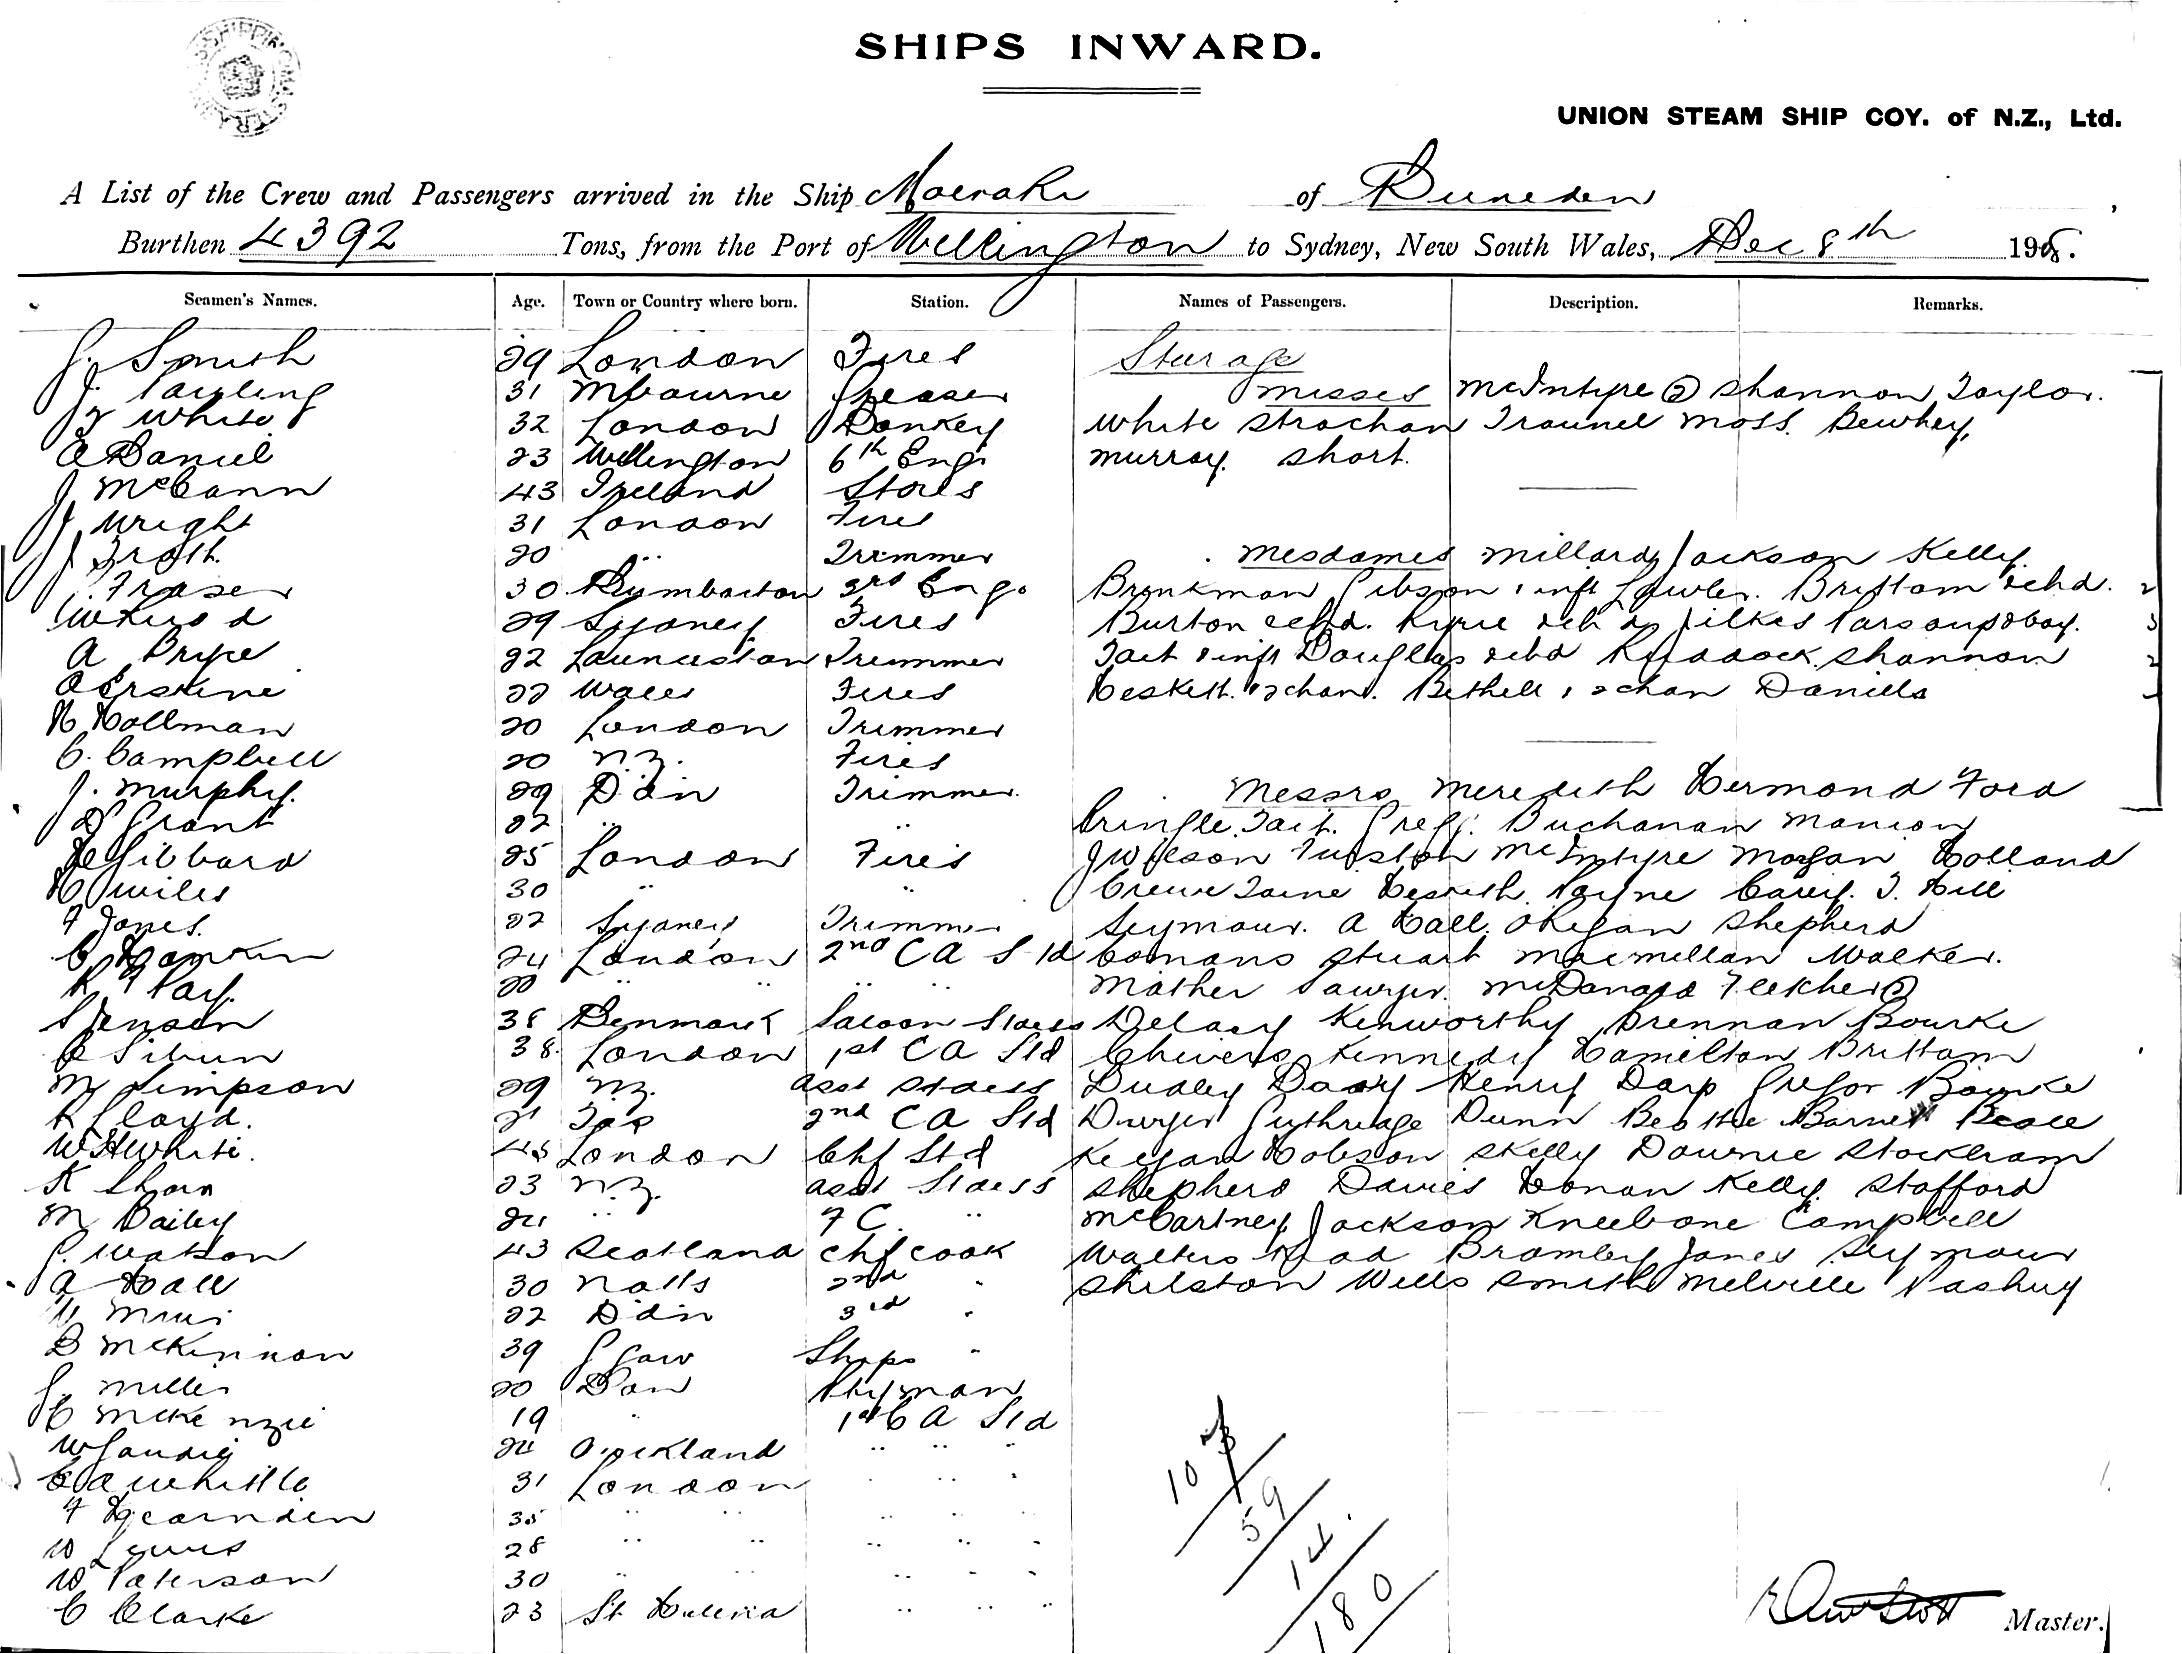 SHIPS INWARD.
UNION STEAM SHIP COY. of N.Z., Ltd.
A List of the Crew and Passengers arrived in the Ship Moeraki of Dunedin
Burthen 4392 Tons, from the Port of Wellington to Sydney, New South Wales, Dec 8th 1908.
Seamen's Names. Age. Town or Country where born. Station. Names of Passengers. Description. Remarks.
J. Smith 29 London Fires Steerage
J. Pauling 31 Mbourne Greaser Misses McIntyre (2) Shannon Taylor.
J White 32 London Donkey White Strachan Traunel Moss. Dewhey,
A Daniel 23 Wellington 6th Eng. Murray. Short.
J McCann 43 Ireland Stores
J Wright 31 London Fires
J Froth. 20 .. Trimmer Mesdames Millard, Jackson Kelly.
J. Fraser 30 Dumbarton 3rd Eng. Brinkman Gibson & inft Lawler. Brittam & chd. 2
29 Sydney Fires Burton & chd. Kyrie & ch 2 Jilkes Parsons & boy. 3
A Pryke 22 Launceston Trimmer Tait & inft Douglas & chd Ruddock. Shannon 2
A Erskine 22 Wales Fires Heskett. & 2 chdn. Bethell, & 2 chdn Daniells
H Hollman 20 London Trimmer
C. Campbell 20 N.Z. Fires
J. Murphy. 29 Ddin Trimmer. Messrs Meredith Hermond Ford
D Grant 22 .. .. Pringle. Tait. Gregg. Buchanan Manion
H Gibbard 25 London Fires J Wilson Twiston McIntyre Morgan Holland
H Wiles 30 .. .. Crewe Taine Heskith Payne Carey. T. Hill
F Jones. 22 Sydney Trimmer Seymour. A Hall. OKegan Shepherd
C Hamkin 24 London 2nd C A Std Comans Stuart Macmillan Walker.
R G Pay. 20 .. .. .. .. Mather Sawyer. McDonald Fletcher (2)
S Jensen 38 Denmark Saloon Stdess Delacy Kenworthy Drennan Bourke
C Sibun 38. London 1st C A Std Chivers Kennedy Hamilton Brittam
M Simpson 29 N.Z. Asst Stdess Dudley Davy Henry Darp Gregor Bourke
R Lloyd. 21 Tas 2nd C A Std Dwyer Guthridge Dunn Beattie Barnett Beale
W H White. 45 London Chf Std Keegan Hobson Skelly Downie Stockham
K Shorn 23 N.Z. Asst Stdess Shepherd Davies Honan Kelly Stafford
M Dailey 24 .. F C. .. McCartney, Jackson Kneebone Campbell
G. Watson 43 Scotland Chf Cook Walters Read Bromley Jones Seymour
A Hall 30 Notts 2nd .. Shilston Wells Smith Melville Pashuy
22 Ddin 3rd ..
D McKinnon 39 Ggow Ships ..
J. Miller 20 Ddin Ptryman
C McKenzie 19 .. 1st C A Std
W Gaudie 24 Auckland .. .. ..
C A Whittle 31 London .. .. ..
F Hearnden 35 .. .. .. .. ..
W Lewis 28 .. .. .. .. ..
W Paterson 30 .. .. .. .. ..
C Clarke 23 St Helena .. .. ..
59
14.
180
Master.